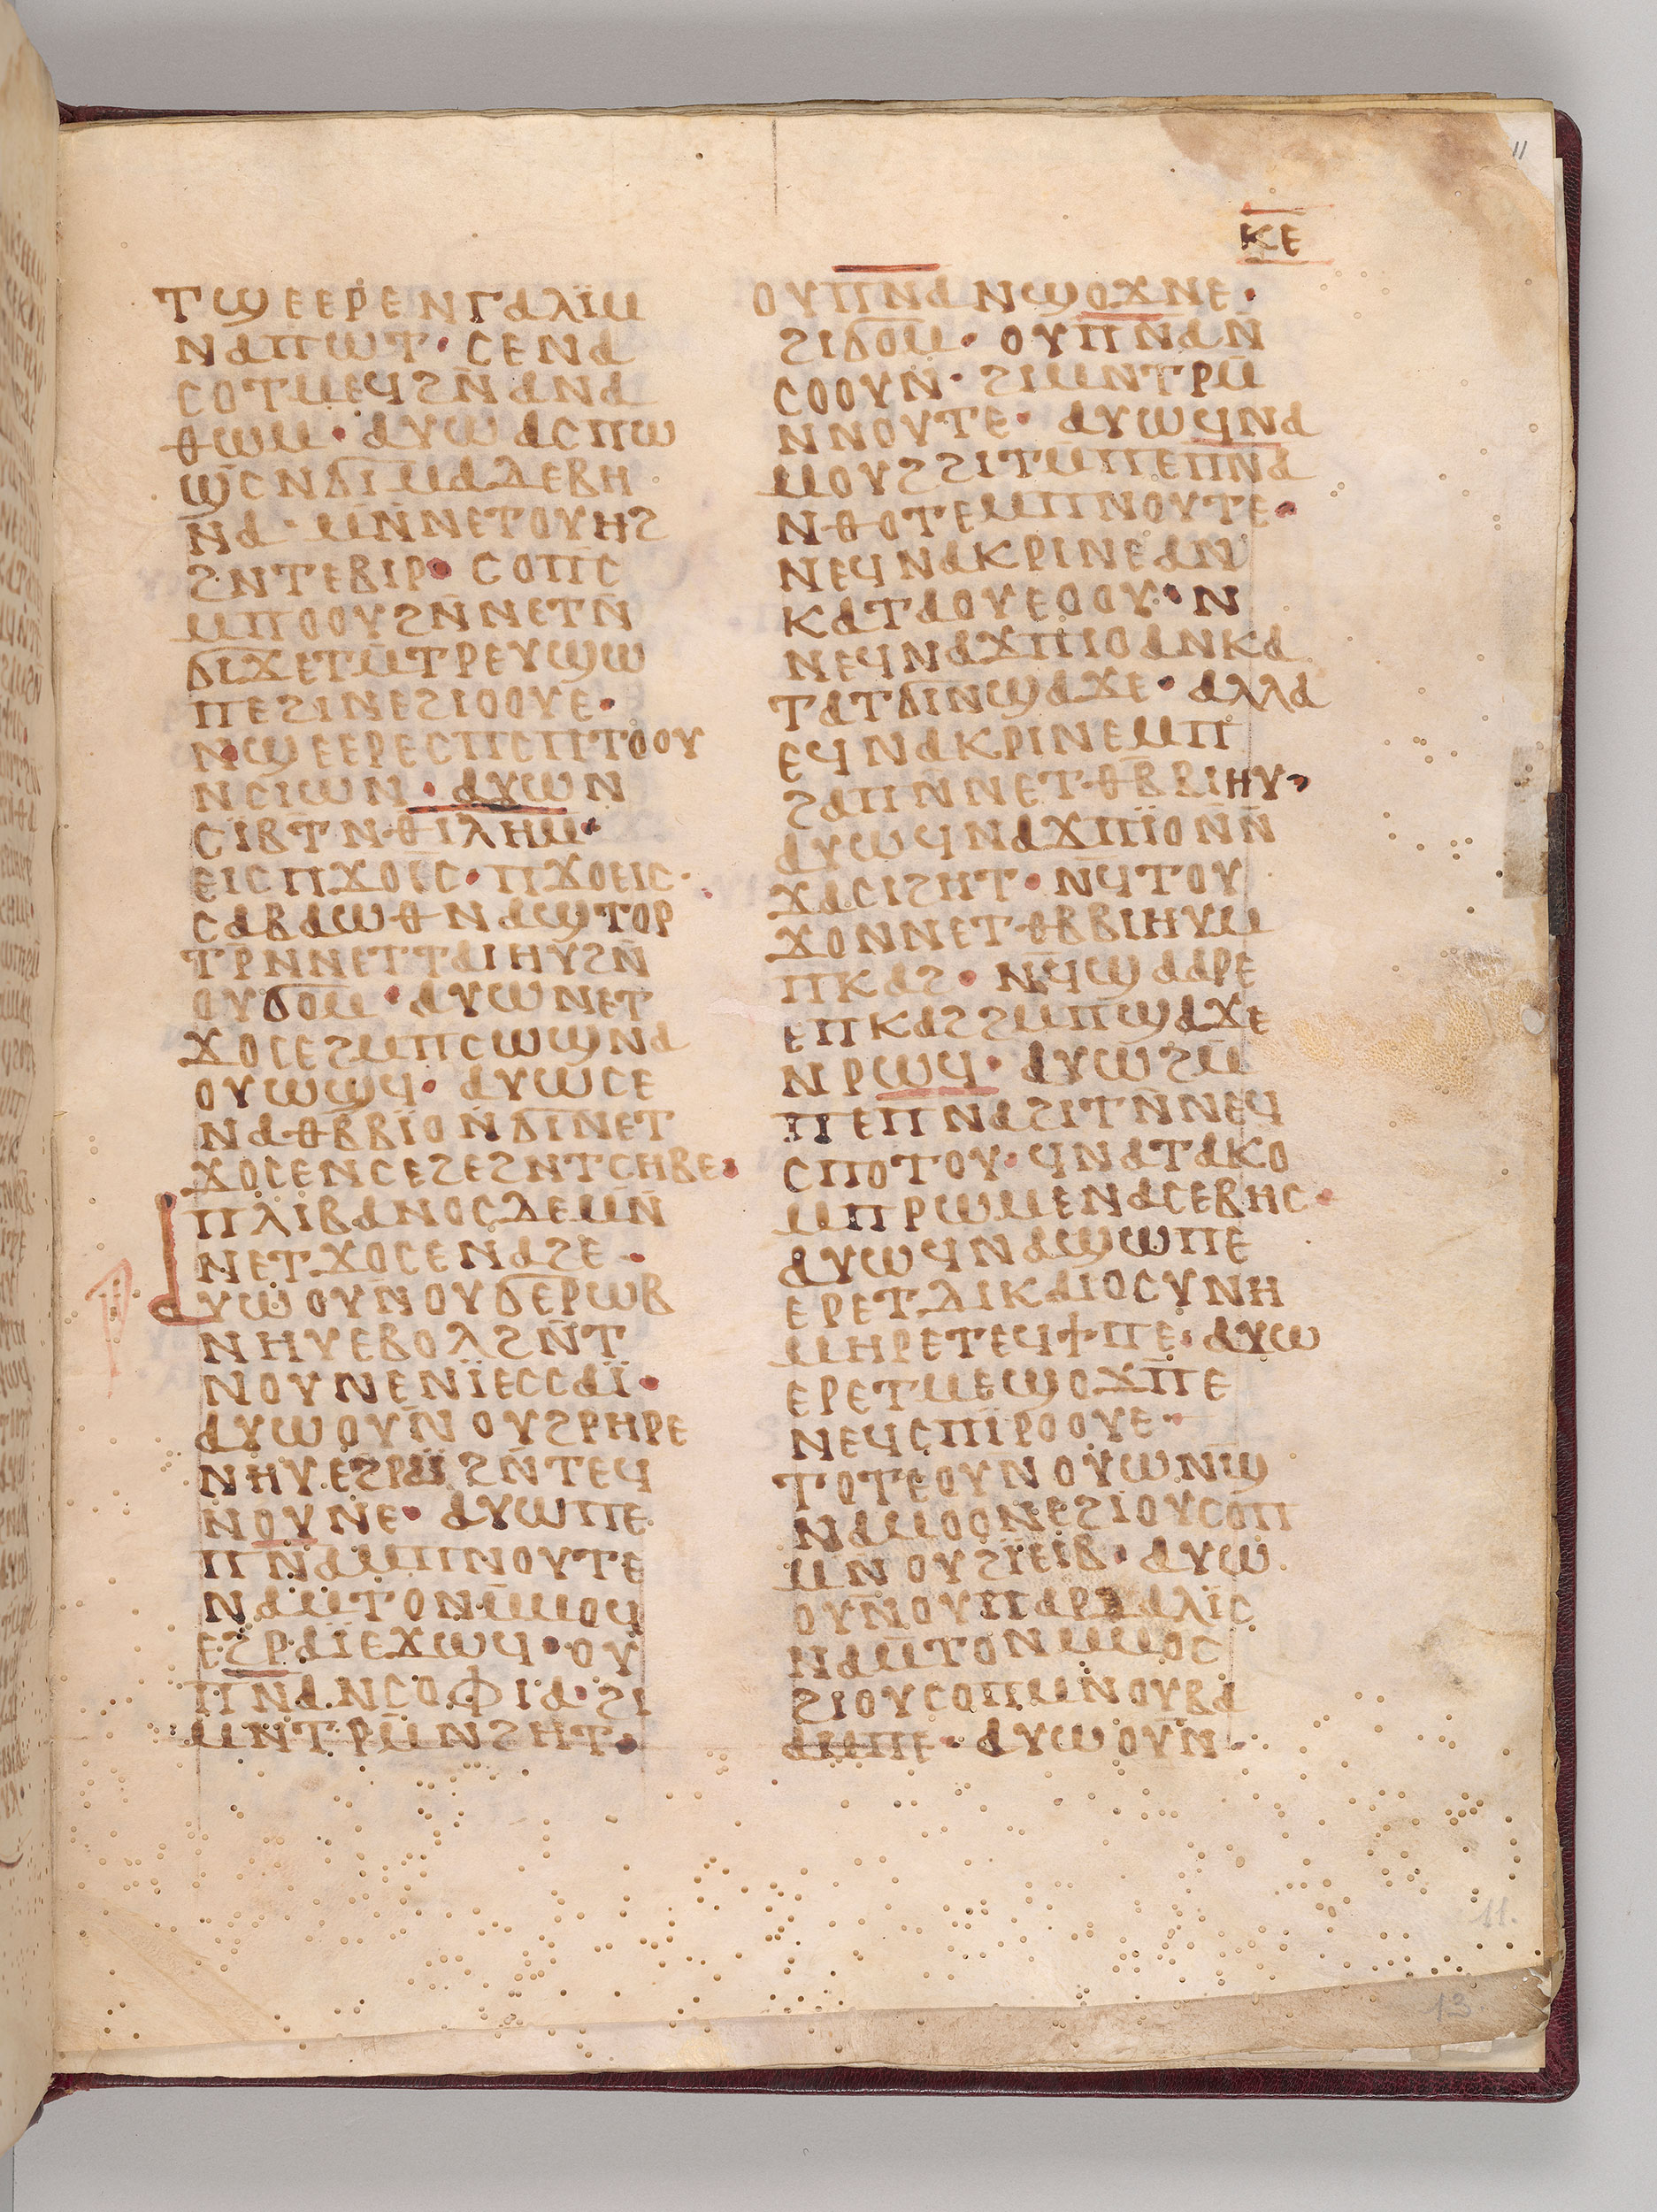 11
ⲕⲉ
ⲧϣⲉⲉⲣⲉⲛⲅⲁⲗⲓ̈ⲙ
ⲛⲁⲡⲱⲧ· ⲥⲉⲛⲁ
ⲥⲟⲧⲙⲉϥϩⲛ̄ⲁⲛⲁ
ⲑⲱⲙ· ⲁⲩⲱ ⲁⲥⲡⲱ
ϣ̄ⲥⲛϭⲓⲙⲁⲇⲉⲃⲏ
ⲛⲁ· ⲙⲛ̄ⲛⲉⲧⲟⲩⲏϩ
ϩⲛⲧⲉⲃⲓⲣ· ⲥⲟⲡⲥ̄
ⲙⲡⲟⲟⲩϩⲛ̄ⲛⲉⲧⲛ̄
ϭⲓϫⲉⲧⲙ̄ⲧⲣⲉⲩϣⲱ
ⲡⲉϩⲓⲛⲉϩⲓⲟⲟⲩⲉ·
ⲛϣⲉⲉⲣⲉⲥⲡⲥⲡⲡ̄ⲧⲟⲟⲩ
ⲛⲥⲓⲱⲛ· ⲁⲩⲱⲛ
ⲥⲓⲃⲧ̄ⲛⲑⲓⲗⲏⲙ·
ⲉⲓⲥⲡϫⲟⲓ̈ⲥ· ⲡϫⲟⲉⲓⲥ·
ⲥⲁⲃⲁⲱⲑⲛⲁϣⲧⲟⲣ
ⲧⲣ̄ⲛⲛⲉⲧⲧⲁⲓⲏⲩϩⲛ̄
ⲟⲩϭⲟⲙ· ⲁⲩⲱⲛⲉⲧ
ϫⲟⲥⲉϩⲙⲡⲥⲱϣⲛⲁ
ⲟⲩⲱϣϥ· ⲁⲩⲱⲥⲉ
ⲛⲁⲑⲃ̄ⲃⲓ̈ⲟⲛ̄ϭⲓⲛⲉⲧ
ϫⲟⲥⲉⲛⲥⲉϩⲉϩⲛⲧⲥⲏⲃⲉ·
ⲡⲗⲓⲃⲁⲛⲟⲥⲇⲉⲙⲛ̄
ⲛⲉⲧϫⲟⲥⲉⲛⲁϩⲉ·
ⲁⲩⲱⲟⲩⲛ̄ⲟⲩϭⲉⲣⲱⲃ
ⲛⲏⲩⲉⲃⲟⲗϩⲛ̄ⲧ
ⲛⲟⲩⲛⲉⲛⲓ̈ⲉⲥⲥⲁⲓ̈·
ⲁⲩⲱⲟⲩⲛ̄ⲟⲩϩⲣⲏⲣⲉ
ⲛⲏⲩⲉϩⲣⲁⲓ̈ϩⲛ̄ⲧⲉϥ
ⲛⲟⲩⲛⲉ· ⲁⲩⲱⲡⲉ
ⲡⲛ̄ⲁⲙⲡⲛⲟⲩⲧⲉ
ⲛⲁⲙ̄ⲧⲟⲛⲙ̄ⲙⲟϥ
ⲉϩⲣⲁⲓ̈ⲉϫⲱϥ· ⲟⲩ
ⲡⲛ̄ⲁⲛⲥⲟⲫⲓⲁ· ϩⲓ
ⲙⲛ̄ⲧⲣⲙ̄ⲛϩⲏⲧ·
ⲟⲩⲡⲛ̄ⲁⲛϣⲟϫⲛⲉ·
ϩⲓϭⲟⲙ· ⲟⲩⲡⲛ̄ⲁⲛ̄
ⲥⲟⲟⲩⲛ· ϩⲓⲙⲛⲧⲣⲙ̄
ⲛⲛⲟⲩⲧⲉ· ⲁⲩⲱϥⲛⲁ
ⲙⲟⲩϩϩⲓⲧⲙ̄ⲡⲉⲡⲛ̄ⲁ
ⲛⲑⲟⲧⲉⲙⲡⲛⲟⲩⲧⲉ·
ⲛⲉϥⲛⲁⲕⲣⲓⲛⲉⲁⲛ
ⲕⲁⲧⲁⲟⲩⲉⲟⲟⲩ· ⲛ
ⲛⲉϥⲛⲁϫⲡⲓⲟⲁⲛⲕⲁ
ⲧⲁⲧϭⲓⲛϣⲁϫⲉ· ⲁⲗⲗⲁ
ⲉϥⲛⲁⲕⲣⲓⲛⲉⲙⲡ
ϩⲁⲡⲛ̄ⲛⲉⲧⲑⲃⲃⲓⲏⲩ·
ⲁⲩⲱϥⲛⲁϫⲡⲓ̈ⲟⲛ̄ⲛ̄
ϫⲁⲥⲓϩⲏⲧ· ⲛϥⲧⲟⲩ
ϫⲟⲛⲛⲉⲧⲑⲃⲃⲓⲏⲩⲙ
ⲡⲕⲁϩ· ⲛϥ̄ϣⲁⲁⲣⲉ
ⲉⲡⲕⲁϩϩⲙⲡϣⲁϫⲉ
ⲛⲣⲱϥ· ⲁⲩⲱϩⲙ̄
ⲡⲉⲡⲛ̄ⲁϩⲓⲧⲛ̄ⲛⲉϥ
ⲥⲡⲟⲧⲟⲩ· ϥⲛⲁⲧⲁⲕⲟ
ⲙⲡⲣⲱⲙⲉⲛⲁⲥⲉⲃⲏⲥ·
ⲁⲩⲱϥⲛⲁϣⲱⲡⲉ
ⲉⲣⲉⲧⲇⲓⲕⲁⲓⲟⲥⲩⲛⲏ
ⲙⲏⲣⲉⲧⲉϥϯⲡⲉ· ⲁⲩⲱ
ⲉⲣⲉⲧⲙⲉϣⲟϫⲡ̄ⲉ
ⲛⲉϥⲥⲡⲓⲣⲟⲟⲩⲉ·
ⲧⲟⲧⲉⲟⲩⲛⲟⲩⲱⲛϣ̄
ⲛⲁⲙⲟⲟⲛⲉϩⲓⲟⲩⲥⲟⲡ
ⲙⲛⲟⲩϩⲓ̈ⲉⲓⲃ· ⲁⲩⲱ
ⲟⲩⲛⲟⲩⲡⲁⲣⲇⲁⲗⲓⲥ
ⲛⲁⲙ̄ⲧⲟⲛⲙⲙⲟⲥ
ϩⲓⲟⲩⲥⲟⲡⲙⲛⲟⲩⲃⲁ
ⲁⲙⲡⲉ· ⲁⲩⲱⲟⲩⲛ̄
11.
13